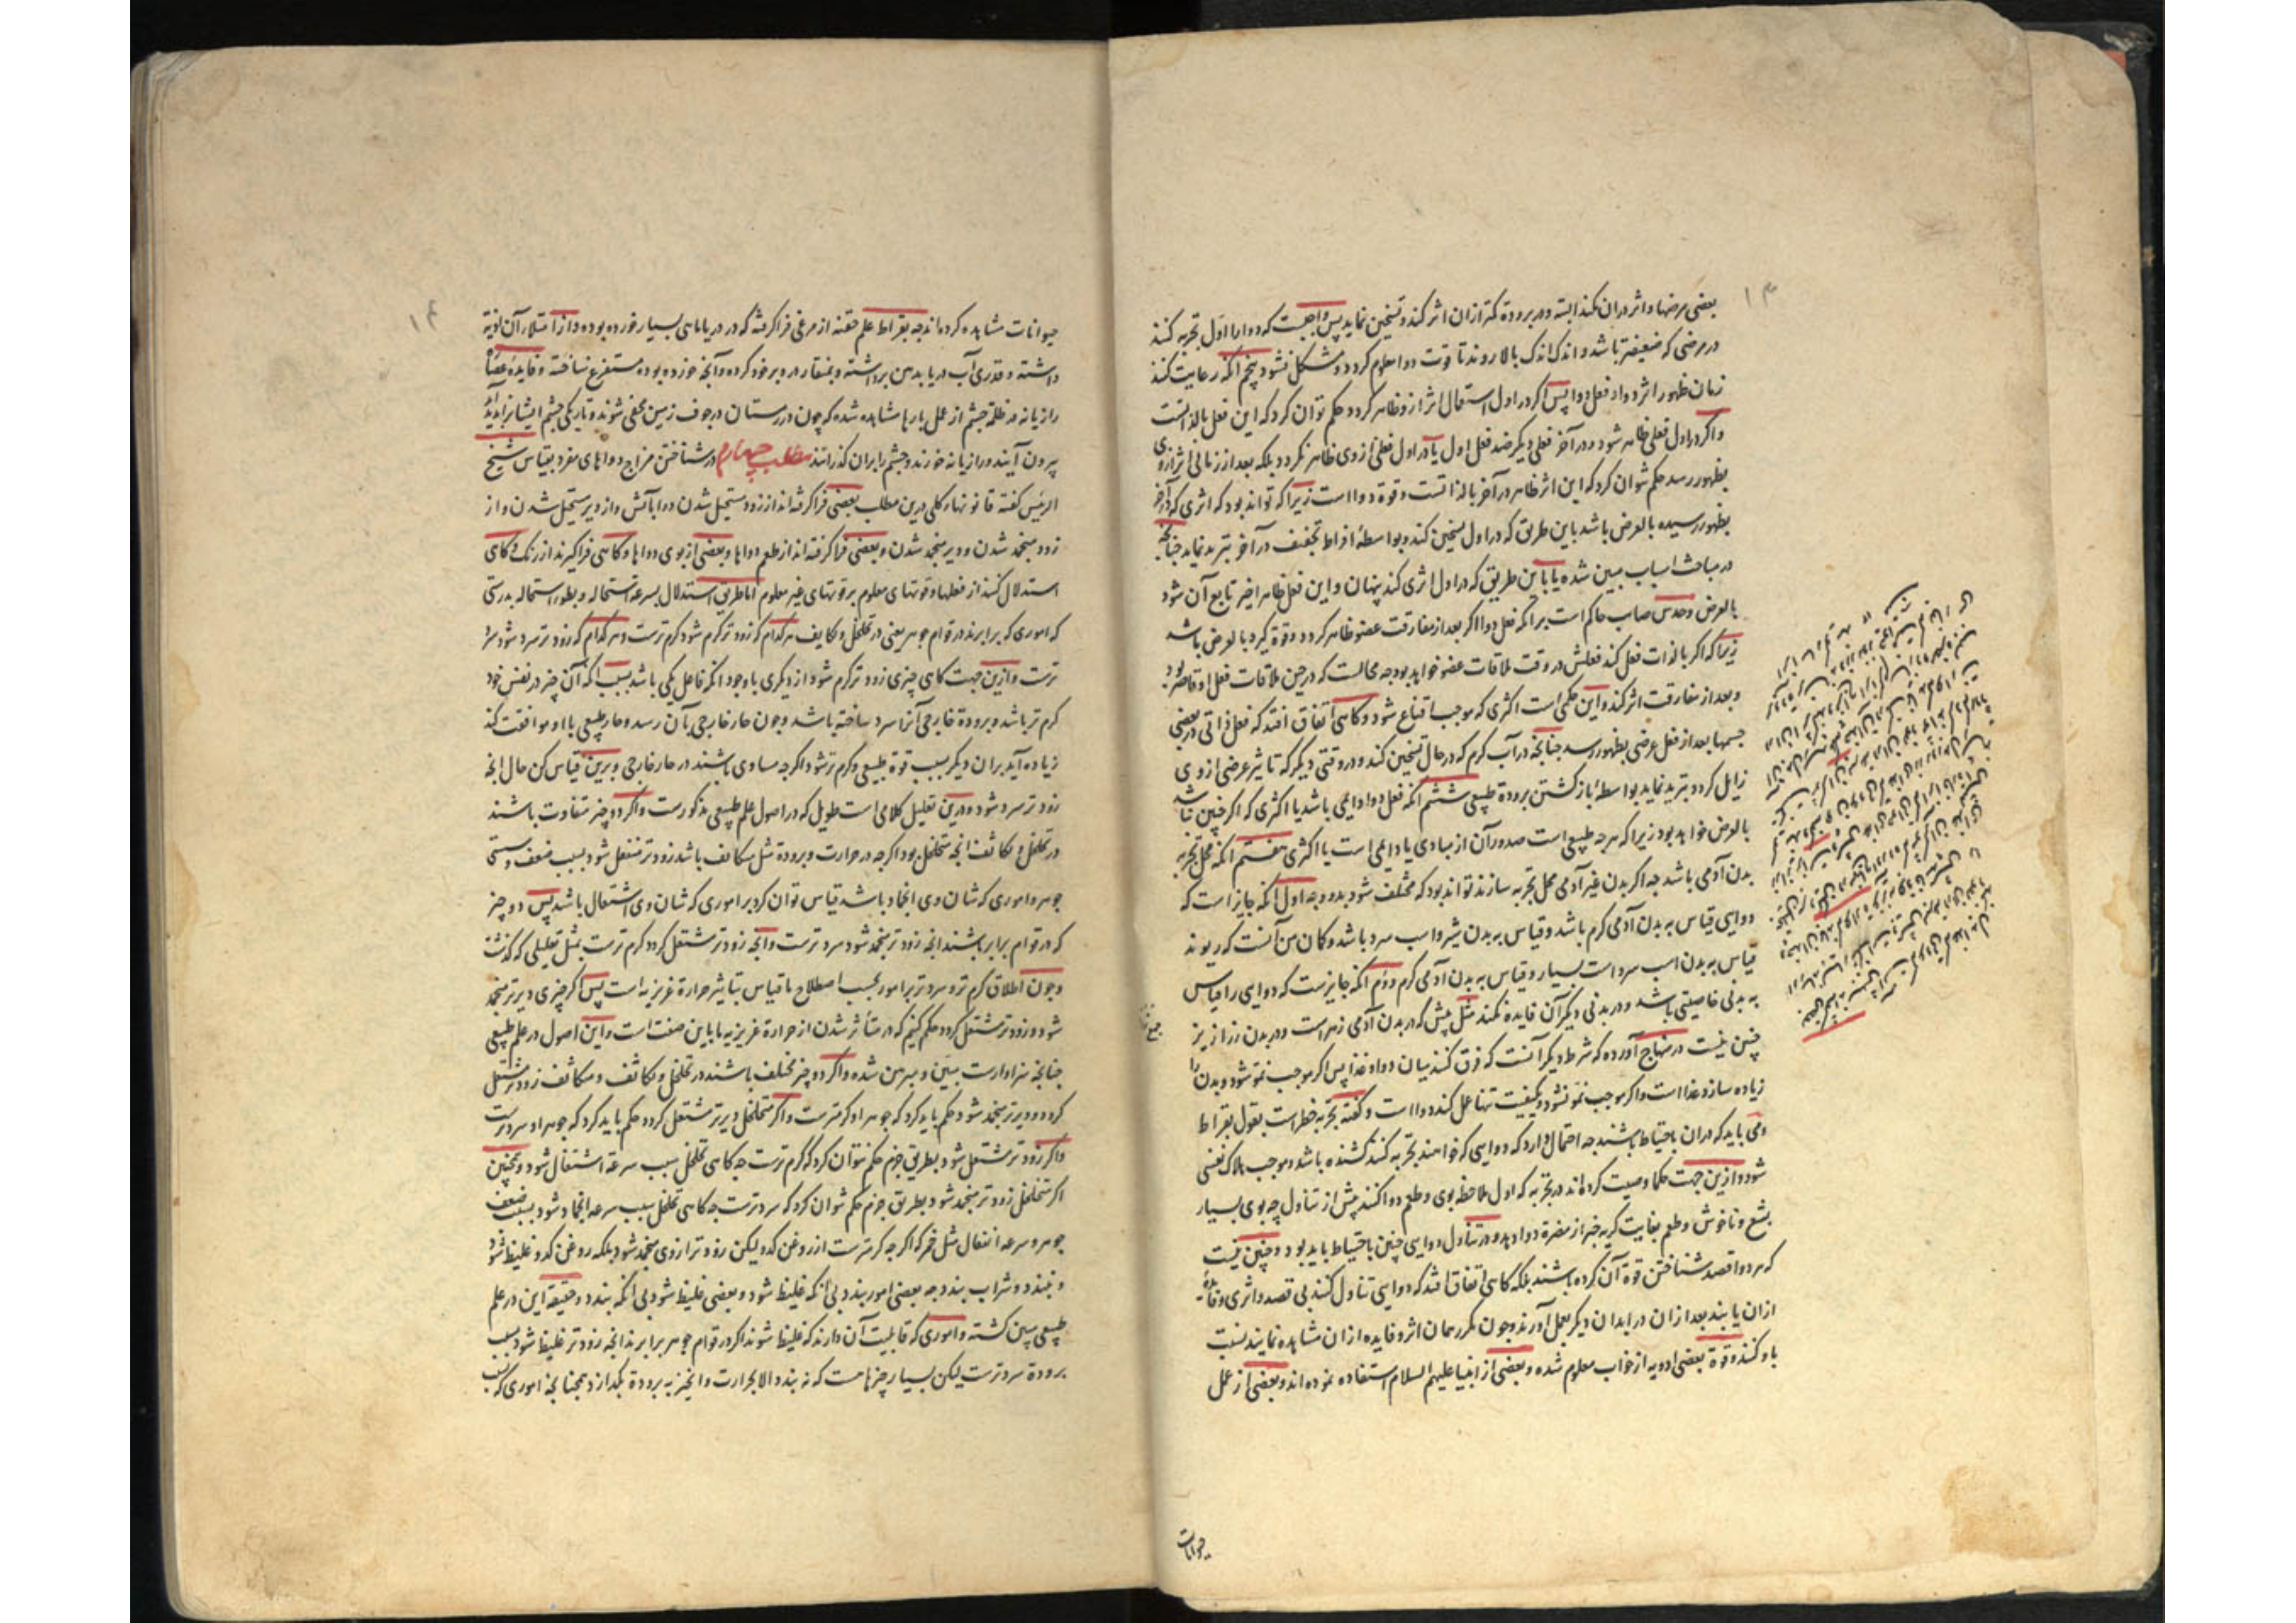 ۱۳
بعضی مرضها و اثر دران نکند البته و در برودة کمتر ازان اثر کند و تسخین نماید پس واجبست که دوا را اول تجربه کنند
در مرضی که ضعیفتر باشد و اندک اندک بالا روند تا قوت دوا معلوم کردد و مشکل نشود پنجم آنکه رعایت کنند
زمان ظهور اثر دوا و فعل دوا پس اکر در اول استعمال اثر ازو ظاهر کردد حکم توان کرد که این فعل بالذاتست
و اکر در اول فعلی ظاهر شود و در آخر فعلی دیکر ضد فعل اول یا در اول فعلی ازوی ظاهر نکردد بلکه بعد از زمانی اثر ازوی
بظهور رسد حکم توان کرد که این اثر ظاهر در آخر بالذاتست و قوة دوا است زیرا که تواند بود که اثری که در آخر
بظهور رسیده بالعرض باشد باین طریق که در اول تسخین کند و بواسطهٔ افراط تجفیف در آخر تبرید نماید چنانچه
در مباحث اسباب مبین شده یا باین طریق که در اول اثری کند پنهان و این فعل ظاهر اخیر تابع آن شود
بالعرض و حدس صایب حاکم است بر انکه فعل دوا اکر بعد از مفارقت عضو ظاهر کردد و قوة کیرد بالعرض باشد
زیرا که اکر بالذات فعل کند فعلش در وقت ملاقات عضو خواهد بود چه محالست که در حین ملاقات فعل او قاصر بود
و بعد از مفارقت اثر کند و این حکمی است اکثری که موجب اقناع شود و کاهی اتفاق افتد که فعل ذاتی در بعضی
جسمها بعد از فعل عرضی بظهور رسد چنانچه در آب کرم که در حال تسخین کند و در وقتی دیکر که تاثیر عرضی ازوی
زایل کردد تبرید نماید بواسطهٔ باز کشتن برودة طبیعی ششم انکه فعل دوا دایمی باشد یا اکثری که اکر چنین نباشد
بالعرض خواهد بود زیرا که هر چه طبیعی است صدور آن از مبادی یا دایمی است یا اکثری هفتم انکه محل تجربه
بدن آدمی باشد چه اکر بدن غیر آدمی محل تجربه سازند تواند بود که مختلف شود بدو وجه اول آنکه جایز است که
دوایی قیاس به بدن آدمی کرم باشد و قیاس به بدن شیر و اسب سرد باشد و کمان من آنست که ریوند
قیاس به بدن اسب سرد است بسیار و قیاس به بدن آدمی کرم دوم آنکه جایزست که دوایی را قیاس
به بدنی خاصیتی باشد و در بدنی دیکر آن فایده نکند مثل بیش که در بدن آدمی زهر است و در بدن زرازیر
چنین نیست در منهاج آورده که شرط دیکر آنست که فرق کنند میان دوا و غذا پس اکر موجب نمو شود و بدن را
زیاده سازد غذا است و اکر موجب نمو نشود و بکیفیت تنها عمل کند دوا است و کفته تجربه خطر است بقول بقراط
و می باید که دران باحتیاط باشند چه احتمال دارد که دوایی که خواهند تجربه کنند کشنده باشد و موجب هلاک نفسی
شود و ازین جهت حکما وصیت کرده اند در تجربه که اول ملاحظه بوی و طعم دوا کنند پیش از تناول چه بوی بسیار
بشع و ناخوش و طعم بغایت کریه خبر از مضرة دوا دهد و در تناول دوایی چنین باحتیاط باید بود و چنین نیست
که هر دوا قصد شناختن قوة آن کرده باشند بلکه کاهی اتفاق افتد که دوایی تناول کنند بی قصد و اثری و فایده
ازان یابند بعد ازان در ابدان دیکر بعمل آورند و چون مکرر همان اثر و فایده ازان مشاهده نمایند نسبت
باو کنند و قوة بعضی ادویه از خواب معلوم شده و بعضی از انبیا علیهم السلام استفاده نموده اند و بعضی از عمل
حیوانات
۱۴
حیوانات مشاهده کرده اند چه بقراط علم حقنه از مرغی فرا کرفته که در دریا ماهی بسیار خورده بوده و از امتلا آن اذیة
داشته و قدری آب دریا بدهن برداشته و بمنقار در دبر خود کرده و آنچه خورده بوده مستفرغ ساخته و فایده عصارهٔ
رازیانه در ظلمة چشم از عمل مارها مشاهده شده که چون در زمستان در جوف زمین مخفی شوند و تاریکی چشم ایشانرا پدید آید
بیرون آیند و رازیانه خورند و چشم را بران کذرانند مطلب چهارم در شناختن مزاج دواهای مفرد بقیاس شیخ
الرئیس کفته قانونهاء کلی درین مطلب بعضی فرا کرفته اند از زود مستحیل شدن دوا بآتش و از دیر مستحیل شدن و از
زود منجمد شدن و دیر منجمد شدن و بعضی فرا کرفته اند از طعم دواها و بعضی از بوی دواها و کاهی فرا کیرند از رنک و کاهی
استدلال کنند از فعلها و قوتهای معلوم بر قوتهای غیر معلوم اما طریق استدلال بسرعة استحاله و بطور استحاله بدرستی
که اموری که برابرند در قوام جوهر یعنی در تخلخل و تکاثف هر کدام که زودتر کرم شود کرم ترست و هر کدام که زودتر سرد شود سرد
ترست و ازین جهت کاهی چیزی زودتر کرم شود از دیکری با وجود انکه فاعل یکی باشد بسبب آنکه آن چیز در نفس خود
کرم تر باشد و برودة خارجی آنرا سرد ساخته باشد و چون حار خارجی بآن رسد و حار طبیعی با او موافقت کند
زیاده آید بران دیکر بسبب قوة طبیعی و کرم تر شود اکرچه مساوی باشند در حار خارجی و برین قیاس کن حال انچه
زودتر سرد شود و درین تعلیل کلامی است طویل که در اصول علم طبیعی مذکورست و اکر دو چیز متفاوت باشند
در تخلخل و تکاثف انچه متخلخل بود اکرچه در حرارت و برودة مثل متکاثف باشد زودتر منفعل شود بسبب ضعف و سستی
جوهر و اموری که شان وی انجماد باشد قیاس توان کرد بر اموری که شان وی اشتعال باشد پس دو چیز
که در قوام برابر باشند انچه زودتر منجمد شود سردترست و انچه زودتر مشتعل کردد کرم ترست بمثل تعلیلی که کذشت
و چون اطلاق کرم تر و سردتر بر امور بحسب اصطلاح ما قیاس بتاثیر حرارة غریزیه است پس اکر چیزی دیرتر منجمد
شود و زودتر مشتعل کردد حکم کنیم که در متأثر شدن از حرارة غریزیه ما باین صفت است و این اصول در علم طبیعی
چنانچه سزاوارست مبین و مبرهن شده و اکر دو چیز مختلف باشند در تخلخل و تکاثف و متکاثف زودتر مشتعل
کردد و دیرتر منجمد شود حکم باید کرد که جوهر او کرمترست و اکر متخلخل دیرتر مشتعل کردد حکم باید کرد که جوهر او سردترست
و اکر زودتر مشتعل شود بطریق جزم حکم نتوان کرد که کرم ترست چه کاهی تخلخل سبب سرعة اشتعال شود و همچنین
اکر متخلخل زودتر منجمد شود بطریق جزم حکم نتوان کرد که سردترست چه کاهی تخلخل سبب سرعة انجماد شود بسبب ضعف
جوهر و سرعة انفعال مثل خمر که اکرچه کرمترست از روغن کدو لیکن زودتر ازوی منجمد شود بلکه روغن کدو غلیظ شود
و نبندد و شراب بندد چه بعضی امور بندد بی انکه غلیظ شود و بعضی غلیظ شود بی انکه بندد و حقیقة این در علم
طبیعی مبین کشته و اموری که قابلیت آن دارند که غلیظ شوند اکر در قوام جوهر برابرند انچه زودتر غلیظ شود بسبب
برودة سردترست لیکن بسیار چیزهاست که نه بندد الا بحرارت و انچه به برودة بکدازد همچنانچه اموری که بسبب